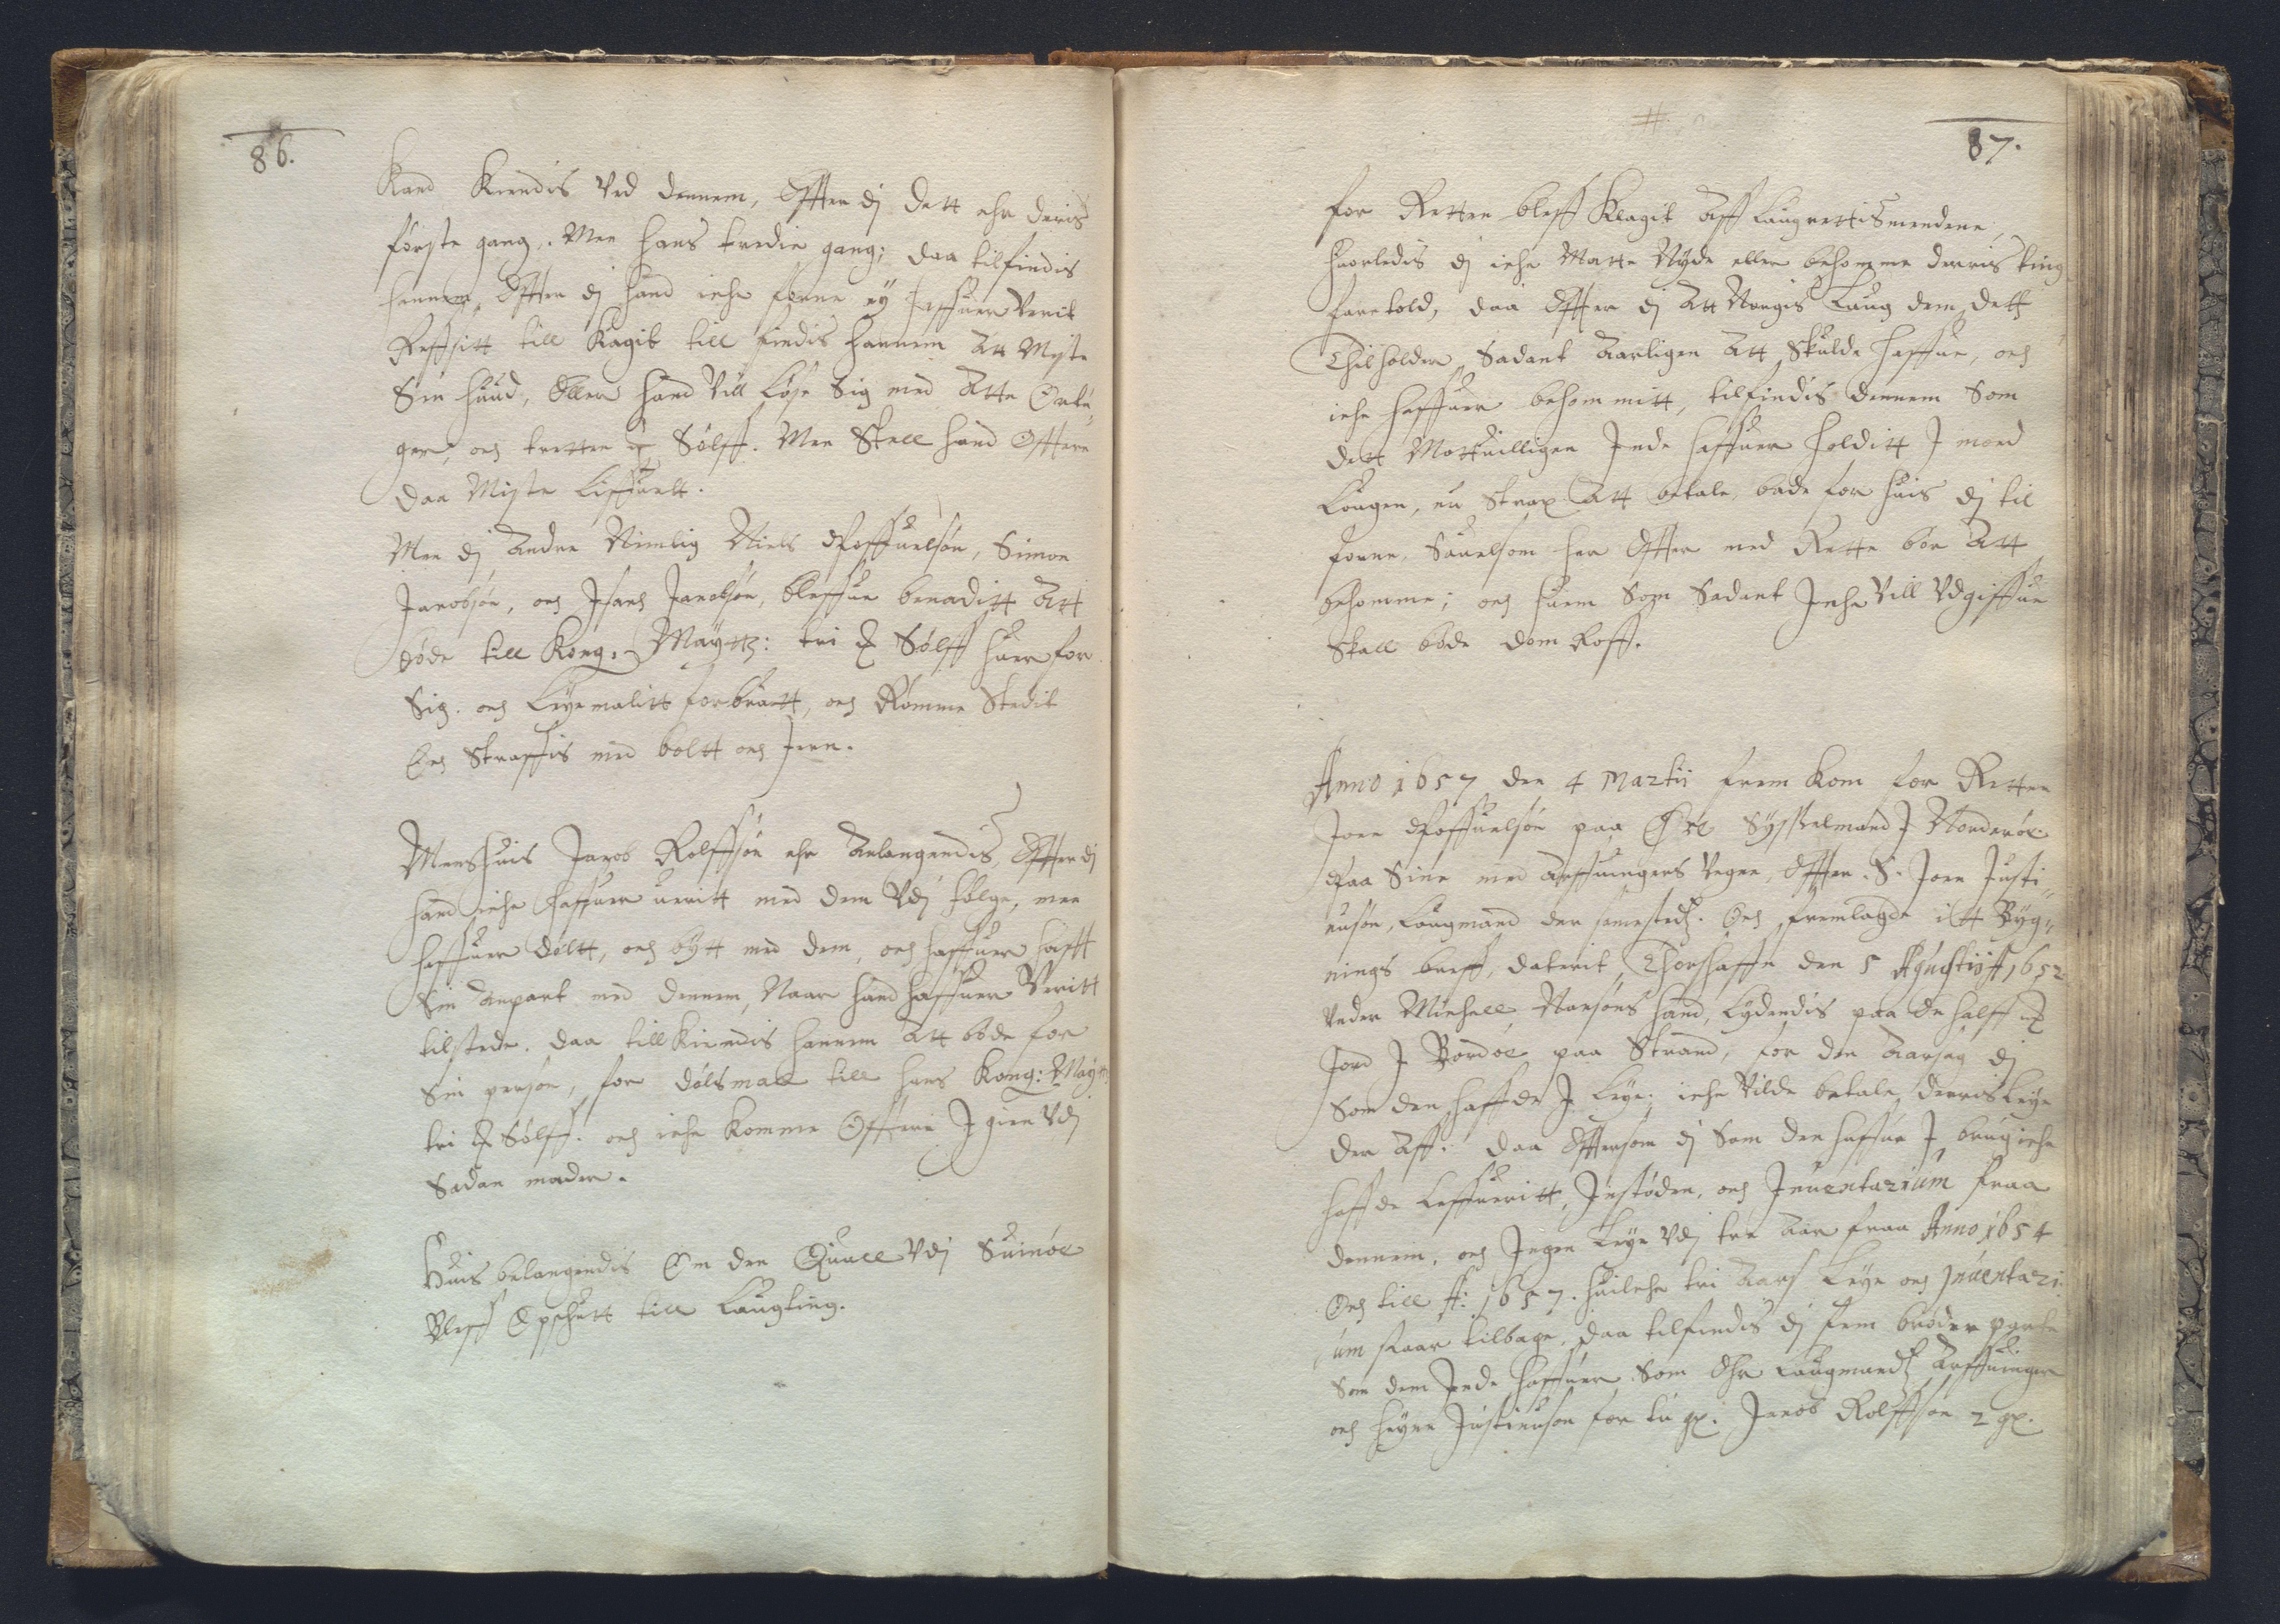 86.
Kand Kiendis Ved dennem, Effter dj dett ehr deris
første gang. Men hans tredie gang; daa tilfindis
hannem, Effter dj hand iche forne ey haffuer Verit
Reffsitt till Kagit till findis hannem att Myste
Sin huud, Eller hand Vill Løse Sig med Atte Ørtu¬
ger, och tretten Sølff. Men Skall hand Offtere
daa Miste Liffuelt.
Men dj Andre Nimlig Niels Poffuelsøn, Simon
Jacobsøn, och Isach Jacobsøn, bleffue benaditt att
bøde till Kong. Maytt: tri Sølff huer for
Sig. och Leyemalitt forbrutt, och Rømme Stedit
Och Straffis med boltt och Jern.
Mens huis Jacob Rolffsøn ehr Anlangendis, Effter dj
hand iche haffuer veritt med dem Vdj følge, men
haffuer døltt, och bytt med dem, och haffuer hafft
Sin anpart med dennem, Naar hand haffuer Veritt
tilstede. daa till Kiendis hannem att bøde for
Sin person, for dølsmaal till hans Kong: May:tt
tri Sølff. och iche komme Offtere J gien Vdj
Sadan mader.
Huis belangendis Om den Quall Vdj Suinøe
Bleff Opschutt till Laugting.
87.
for Retten bleff Klagit Aff Laugrettismendene,
huorledis dj iche Matte Nyde eller bekomme derris ting
faretold, daa Effter dj att Norgis Laug dem dett
Thilholder, Sadant Aarligen att Skulde haffue, och
iche haffuer bekommitt, tilfindis dennem Som
dett Mottuilligen Jnde haffuer holditt J moed
Lougen, nu Strax att betale, bade for huis dj til
forne, Saauelsom her Effter med Rette bør att
bekomme; och huem Som Sadant Jche Vill Vdgiffue
Skall bøde dom Roff.
Anno 1657 den 4 Martii frem kom for Retten
Joen Poffuelsøn paa Øre Sysselmand J Norderøe
Paa Sine med Arffuingers Vegne, Effter S. Joen Justi¬
nusøn, Laugmand der samesteds. Och fremlagde itt Byg¬
nings breff, daterit Thorshaffn den 5 Agustii A 1652
Vnder Michell Larsøns hand, Lydendis paa En halff
Jord J Bordøe paa Strand, for den Aarsag dj
Som den haffde J Leye, iche Vilde betale derris Leye
der Aff. daa Effttersom dj Som den haffue J brug iche
haffde Leffueritt, Jnstøden, och Jnuentarium fraa
dennem, och Jngen Leye Vdj tre Aar fraa Anno 1654
Och till A: 1657. huilche tri Aars Leye och Jnuentari¬
um staar tilbage, daa tilfindis dj fem brøder parte
Som dem Jnde haffuer Som Ehr Laugmands Arffuinger
och heyne Justinuson for tu gl. Jacob Rolffsøn 2 gl.